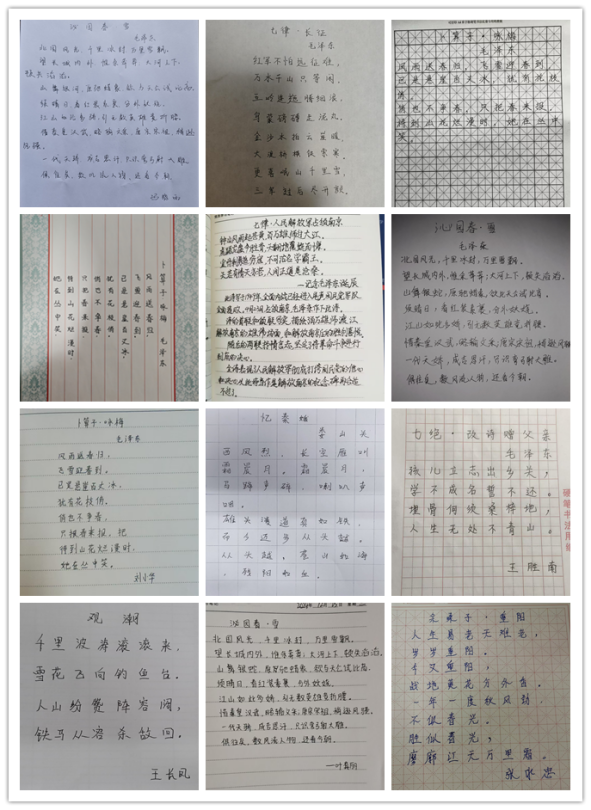 沁园春 雪
毛泽东
北国风光，千里冰封，万里雪飘。
望长城内外，惟余莽莽，大河上下，
顿失滔滔。
山舞银蛇，原驰蜡象，欲与天公试比高。
须晴日，看红装素裹，分外妖娆。
江山如此多娇，引无数英雄竞折腰。
惜秦皇汉武，略输文采，唐宗宋祖，稍逊
风骚。
一代天骄，成吉思汗，只识弯弓射大雕。
俱往矣，数风流人物，还看今朝。
七律·长征
毛泽东
红军不怕远征难，
万水千山只等闲。
五岭逶迤腾细浪，
乌蒙磅礴走泥丸。
金沙水拍云崖暖，
大渡桥横铁索寒。
更喜岷山千里雪，
三军过后尽开颜。
卜算子·咏梅
毛泽东
风雨送春归，飞雪迎春到。
已是悬崖百丈冰，犹有花枝
俏。
俏也不争春，只把春来报。
待到山花烂漫时，她在丛中
笑。
卜算子 咏梅 毛泽东
风雨送春归
飞雪迎春到
已是悬崖百丈冰，
犹有花枝俏。
俏也不争春
只把春来报
待到山花烂漫时，
她在丛中笑
七律·人民解放军占领南京
钟山风雨起苍黄，百万雄师过大江。
虎踞龙盘今胜昔，天翻地覆慨而慷。
宜将剩勇追穷寇，不可沽名学霸王。
天若有情天亦老，人间正道是沧桑。
—纪念毛泽东诞辰
沁园春·雪
毛泽东
北国风光，千里冰封，万里雪飘。
望长城内外，惟余莽莽；大河上下，顿失滔滔。
山舞银蛇，原驰蜡象，欲与天公试比高。
须晴日，看红装素裹，分外妖娆。
江山如此多娇，引无数英雄竞折腰。
惜秦皇汉武，略输文采，唐宗宋祖，稍逊风骚
一代天骄，成吉思汗，只识弯弓射大雕。
俱往矣，数风流人物，还看今朝。
卜算子·咏梅
毛泽东
风雨送春归，
飞雪迎春到。
已是悬崖百丈冰，
犹有花枝俏。
俏也不争春，
只把春来报，
待到山花烂漫时，
她在丛中笑。
刘小华
忆秦娥
娄山关
西风烈，长空雁叫
霜晨月。霜晨月，
马蹄声碎，喇叭声
咽。
雄关漫道真如铁，
而今迈步从头越。
从头越，苍山如海
，残阳如血。
七绝·改诗赠父亲
毛泽东
孩儿立志出乡关，
学不成名誓不还。
埋骨何须桑梓地，
人生无处不青山。
王胜南
观潮
千里波涛滚滚来，
雪花飞向钓鱼台。
人山纷赞阵容阔，
铁马从容杀敌回。
王长风
沁园春·雪
北国风光，千里冰封，万里雪飘。
望长城内外，惟余莽莽；大河上下，顿失滔滔。
山舞银蛇，原驰蜡象，欲与天公试比高。
须晴日，看红装素裹，分外妖娆。
江山如此多娇，引无数英雄竞折腰。
惜秦皇汉武，略输文采，唐宗宋祖，稍逊风骚。
一代天骄，成吉思汗，只识弯弓射大雕。
俱往矣，数风流人物，还看今朝。
采桑子·重阳
人生易老天难老，
岁岁重阳。
今又重阳，
战地黄花分外香。
一年一度秋风劲，
不似春光。
胜似春光，
寥廓江天万里霜。